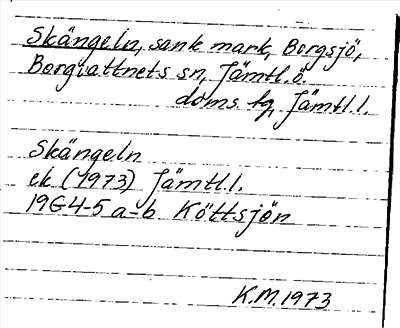 Skängeln, sank mark, Borgsjö,
Borgvattnets sn, Jämtl.ö.
doms. lg, Jämtl.l.
Skängeln
ek (1973) Jämtl.l.
19G4-5 a-b Köttsjön
K.M.1973